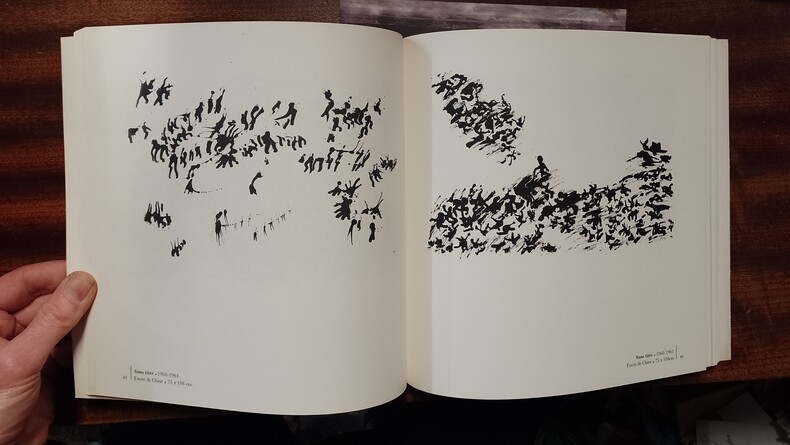 Sans titre • 1960-1961
Encre de Chine • 75 x 108 cm
Sans titre • 1960-1961
Encre de Chine • 75 x 108cm